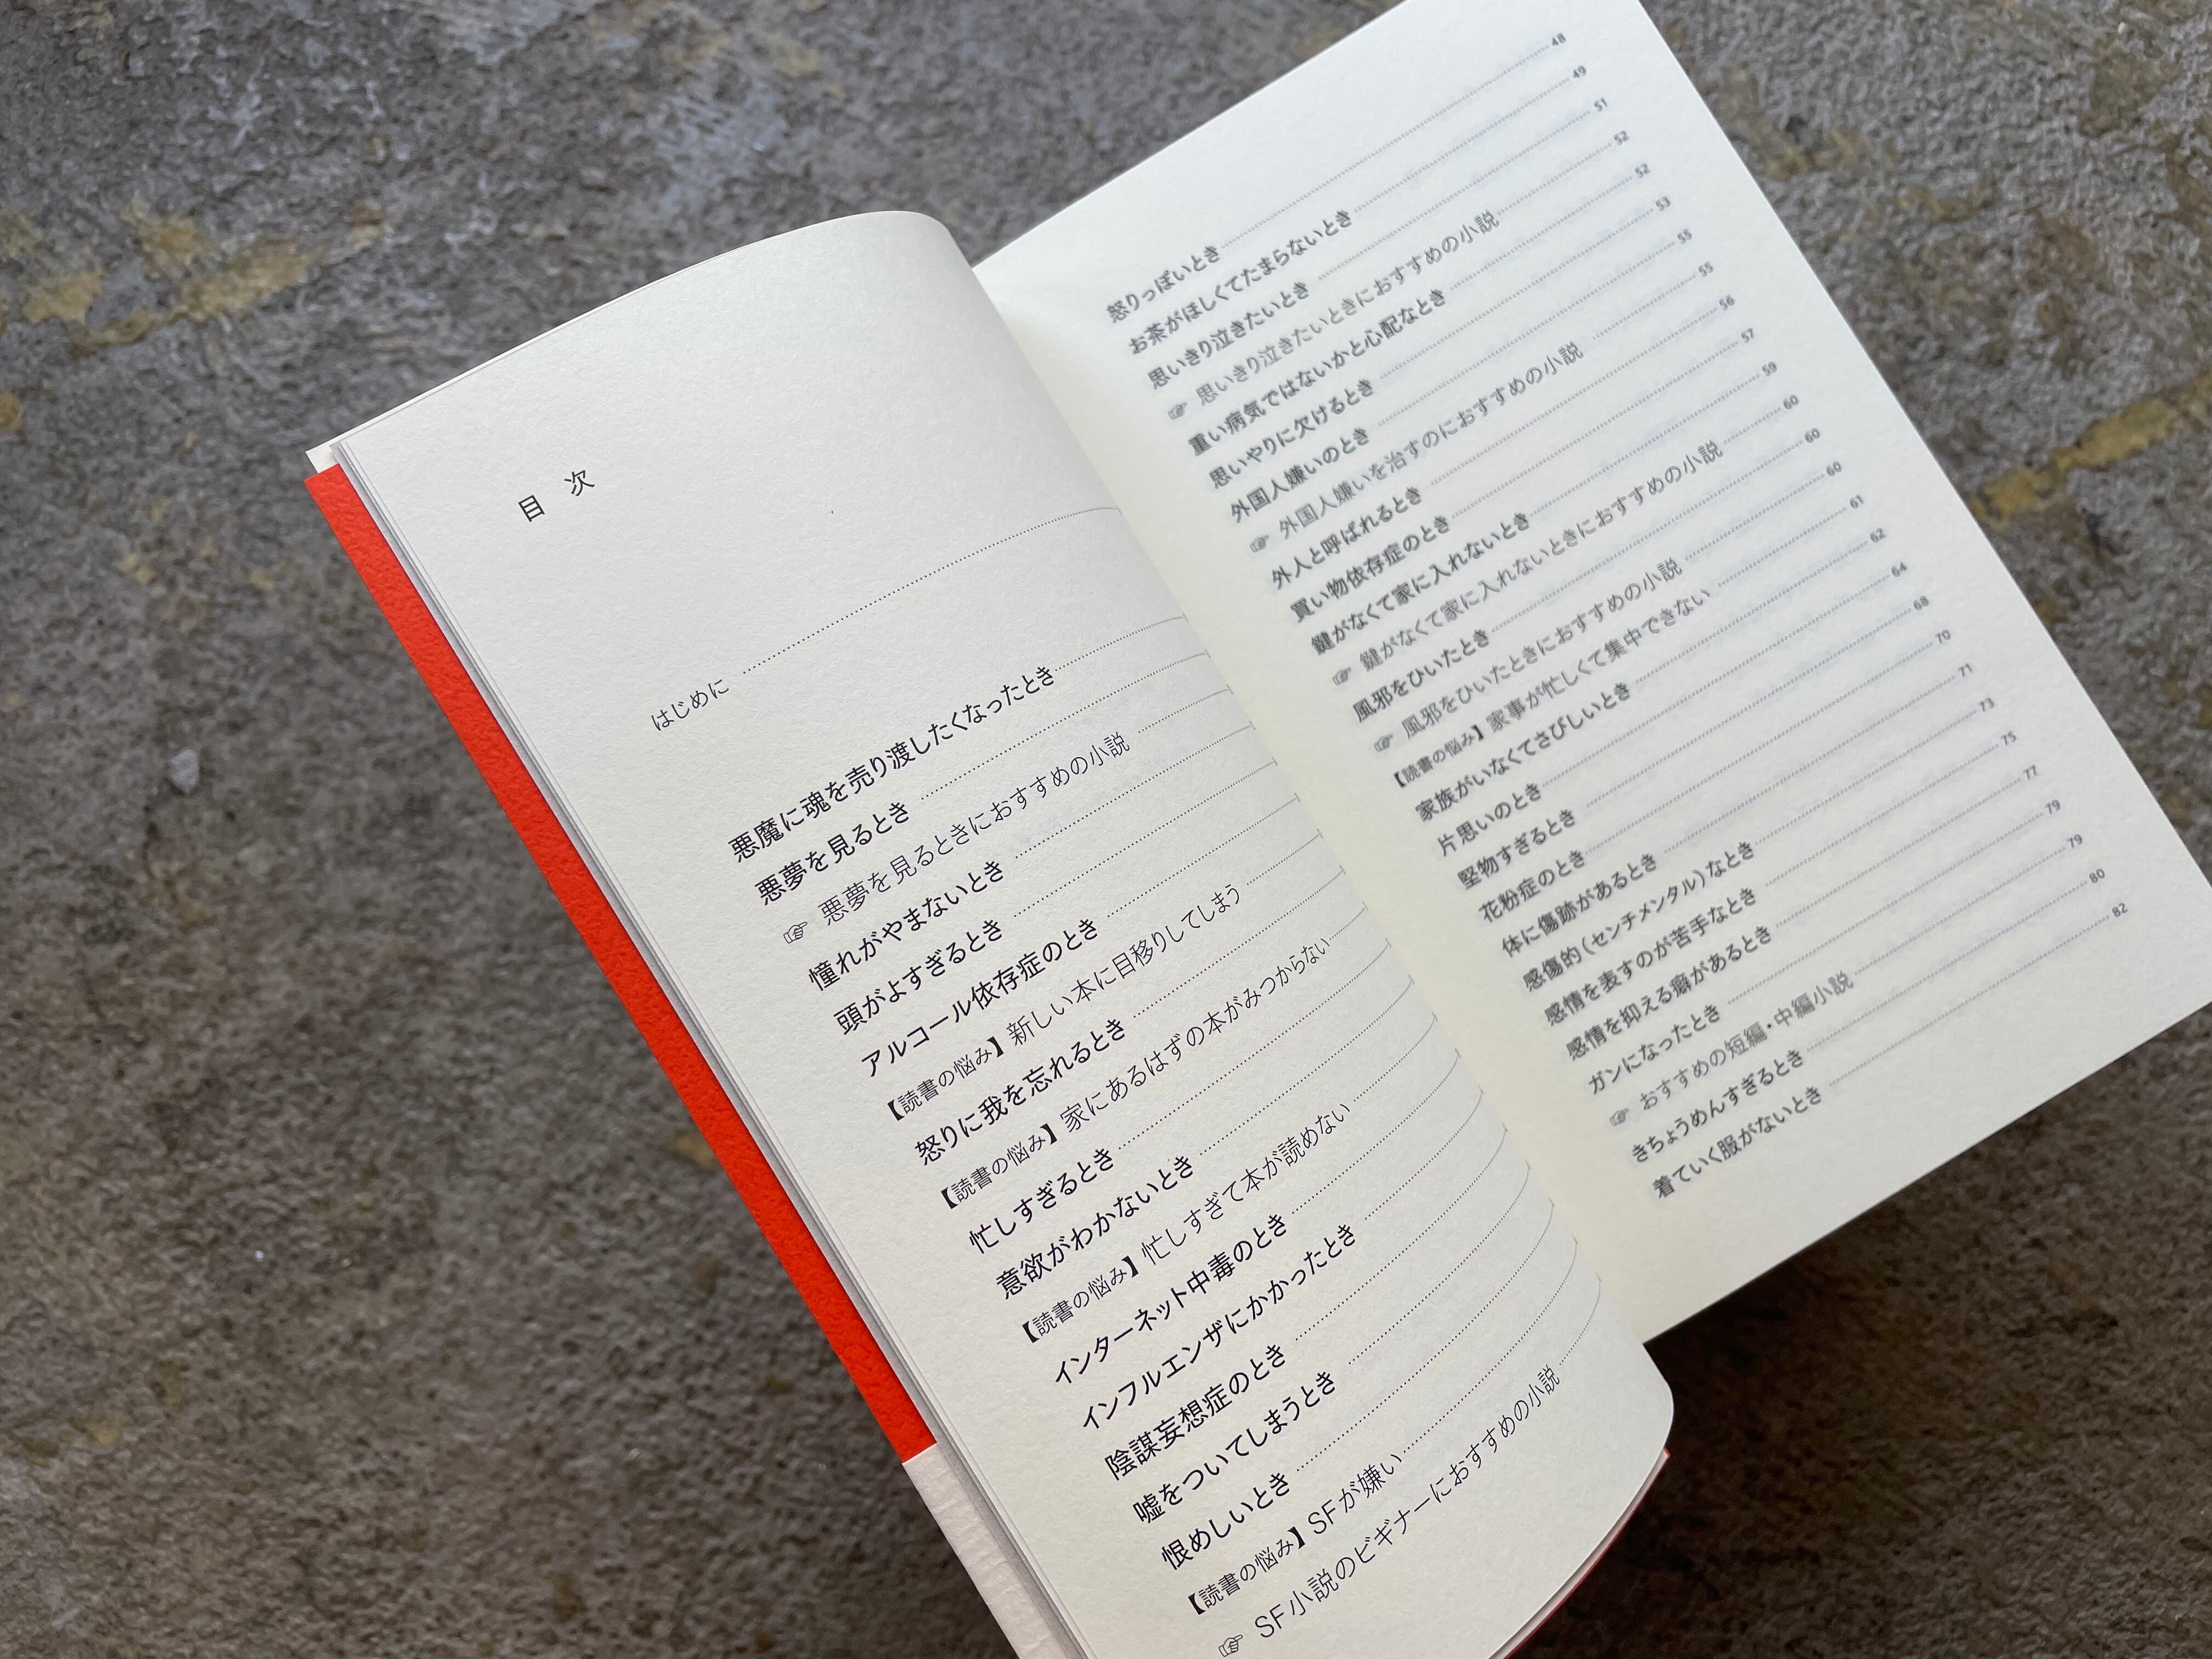 目次
はじめに
悪魔に魂を売り渡したくなったとき
悪夢を見るとき
☞ 悪夢を見るときにおすすめの小説
憧れがやまないとき
頭がよすぎるとき
アルコール依存症のとき
【読書の悩み】新しい本に目移りしてしまう
怒りに我を忘れるとき
【読書の悩み】家にあるはずの本がみつからない
忙しすぎるとき
意欲がわかないとき
【読書の悩み】忙しすぎて本が読めない
インターネット中毒のとき
インフルエンザにかかったとき
陰謀妄想症のとき
嘘をついてしまうとき
恨めしいとき
【読書の悩み】SFが嫌い
☞ SF小説のビギナーにおすすめの小説
怒りっぽいとき 48
お茶がほしくてたまらないとき 49
思いきり泣きたいとき 51
☞ 思いきり泣きたいときにおすすめの小説 52
重い病気ではないかと心配なとき 52
思いやりに欠けるとき 53
外国人嫌いのとき 55
☞ 外国人嫌いを治すのにおすすめの小説 55
外人と呼ばれるとき 56
買い物依存症のとき 57
鍵がなくて家に入れないとき 59
☞ 鍵がなくて家に入れないときにおすすめの小説 60
風邪をひいたとき 60
☞ 風邪をひいたときにおすすめの小説 60
【読書の悩み】家事が忙しくて集中できない 61
家族がいなくてさびしいとき 62
片思いのとき 64
堅物すぎるとき 68
花粉症のとき 70
体に傷跡があるとき 71
感傷的（センチメンタル）なとき 73
感情を表すのが苦手なとき 75
感情を抑える癖があるとき 77
ガンになったとき 79
☞ おすすめの短編・中編小説 79
きちょうめんすぎるとき 80
着ていく服がないとき 82